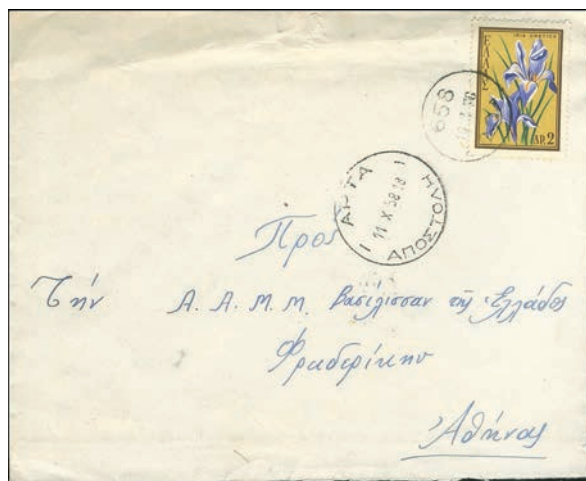 IRIS CRETICA
ΕΛΛΑΣ
ΔΡ. 2
658
ΑΡΤΑ
11 X 58 18
ΑΠΟΣΤΟΛΗ
Πρός
Τήν Α. Α. Μ. Μ. Βασίλισσαν τῆς Ἑλλάδος
Φρειδερίκην
Ἀθήνας